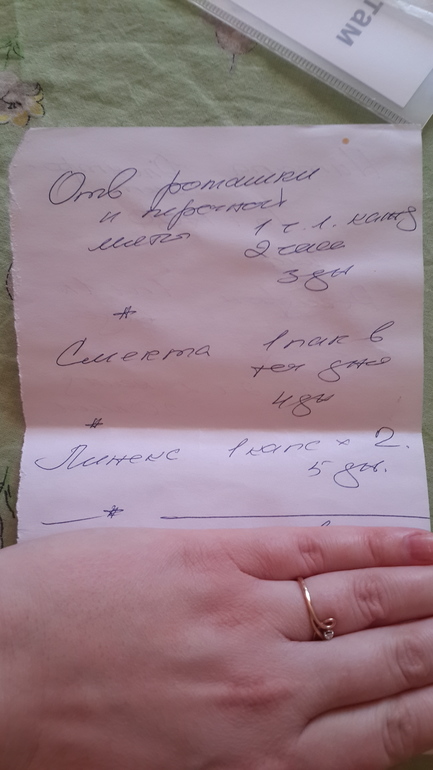 там
Отв ромашки
и перечной
мяты
1 ч. л. кажд
2 часа
3 дн
#
Смекта
1 пак в
теч дня
4 дн
#
Линекс 1 капс × 2.
5 дн.
#